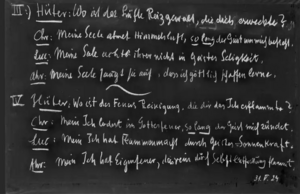 III:) Hüter: Wo ist der Lüfte Reizgewalt, die dich erweckte?
Chr: Meine Seele atmet Himmelslicht, so lang der Geist um mich besteht.
Luc: Meine Seele achtet ihrer nicht in Geistes Seligkeit.
Ahr: Meine Seele saugt sie auf, dass ich göttlich Schaffen lerne.
IV Hüter: Wo ist des Feuers Reinigung, die dir das Ich erflammte?
Chr: Mein Ich lodert im Gottesfeuer, so lang der Geist mich zündet.
Luc: Mein Ich hat Flammenmacht durch Geistes Sonnenkraft.
Ahr: Mein Ich hat Eigenfeuer, das rein durch Selbstentfaltung flammt
31.V.24